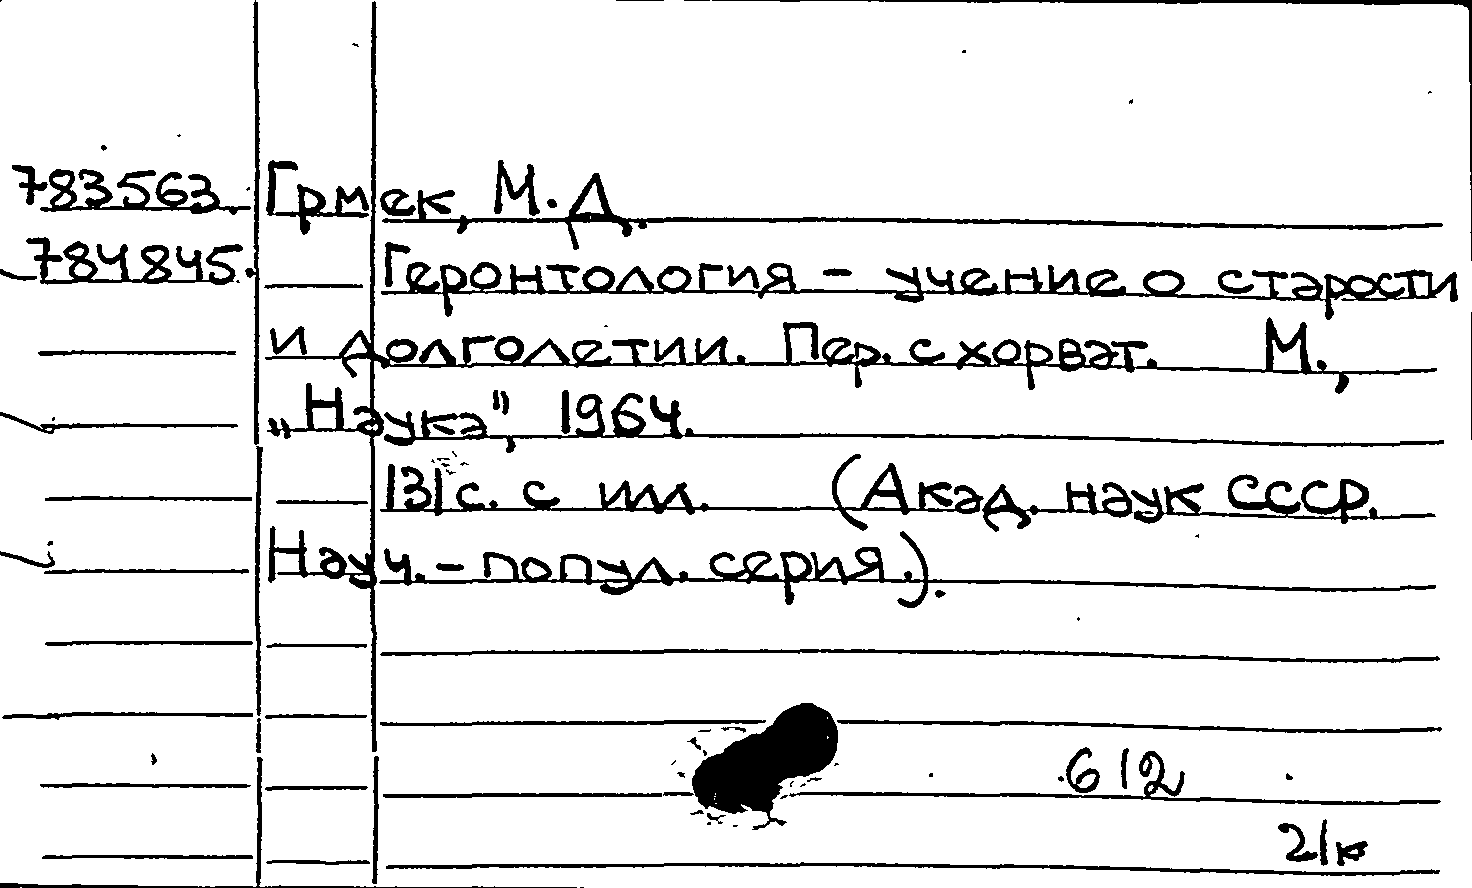 783563. Грмек, М. Д.
784845. Геронтология – учение о старости
и долголетии. Пер. с хорват. М.,
„Наука", 1964.
131 с. с илл. (Акад. наук СССР.
Науч. – попул. серия.).
612
21к